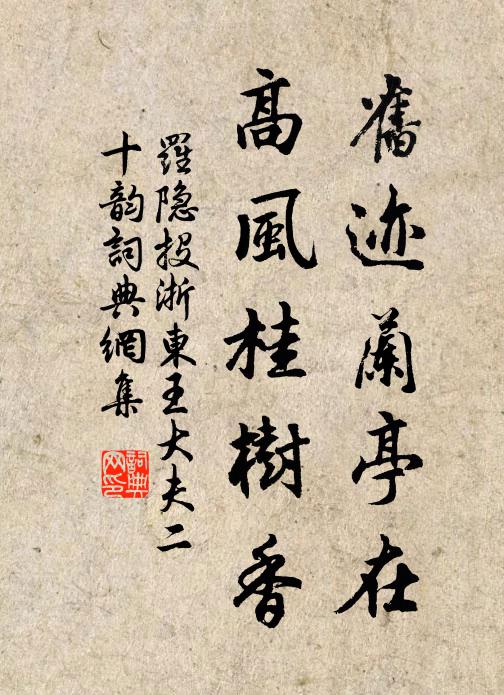 舊迹蘭亭在
高風桂樹香
羅隐投浙東王大夫二
十韵詞典網集
詞典网印